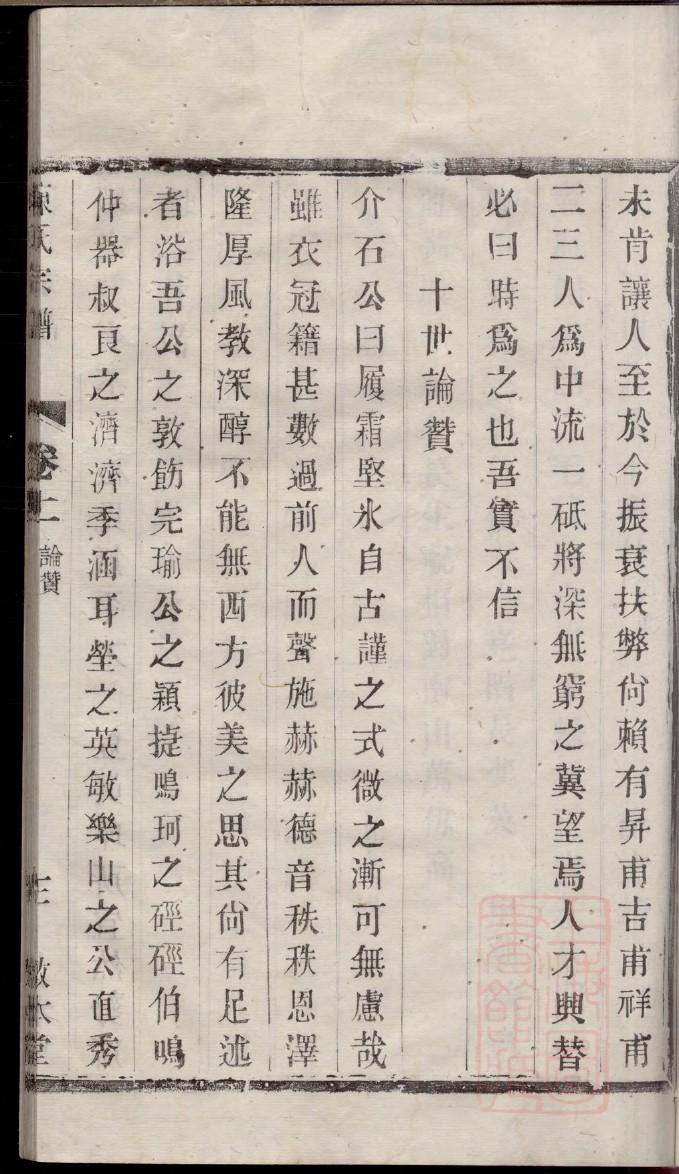 未肯讓人至於今振衰扶弊尙賴有昇甫吉甫祥甫
二三人爲中流一砥將深無窮之冀望焉人才興替
必曰時爲之也吾實不信
十世論贊
介石公曰履霜堅氷自古謹之式微之漸可無慮哉
雖衣冠籍甚數過前人而聲施赫赫德音秩秩恩澤
隆厚風教深醇不能無西方彼美之思其尙有足述
者浴吾公之敦飭完瑜公之穎㨗鳴珂之硜硜伯鳴
仲器叔良之濟濟季涵耳瑩之英敏樂山之公直秀
氏宗譜
卷上
論贊